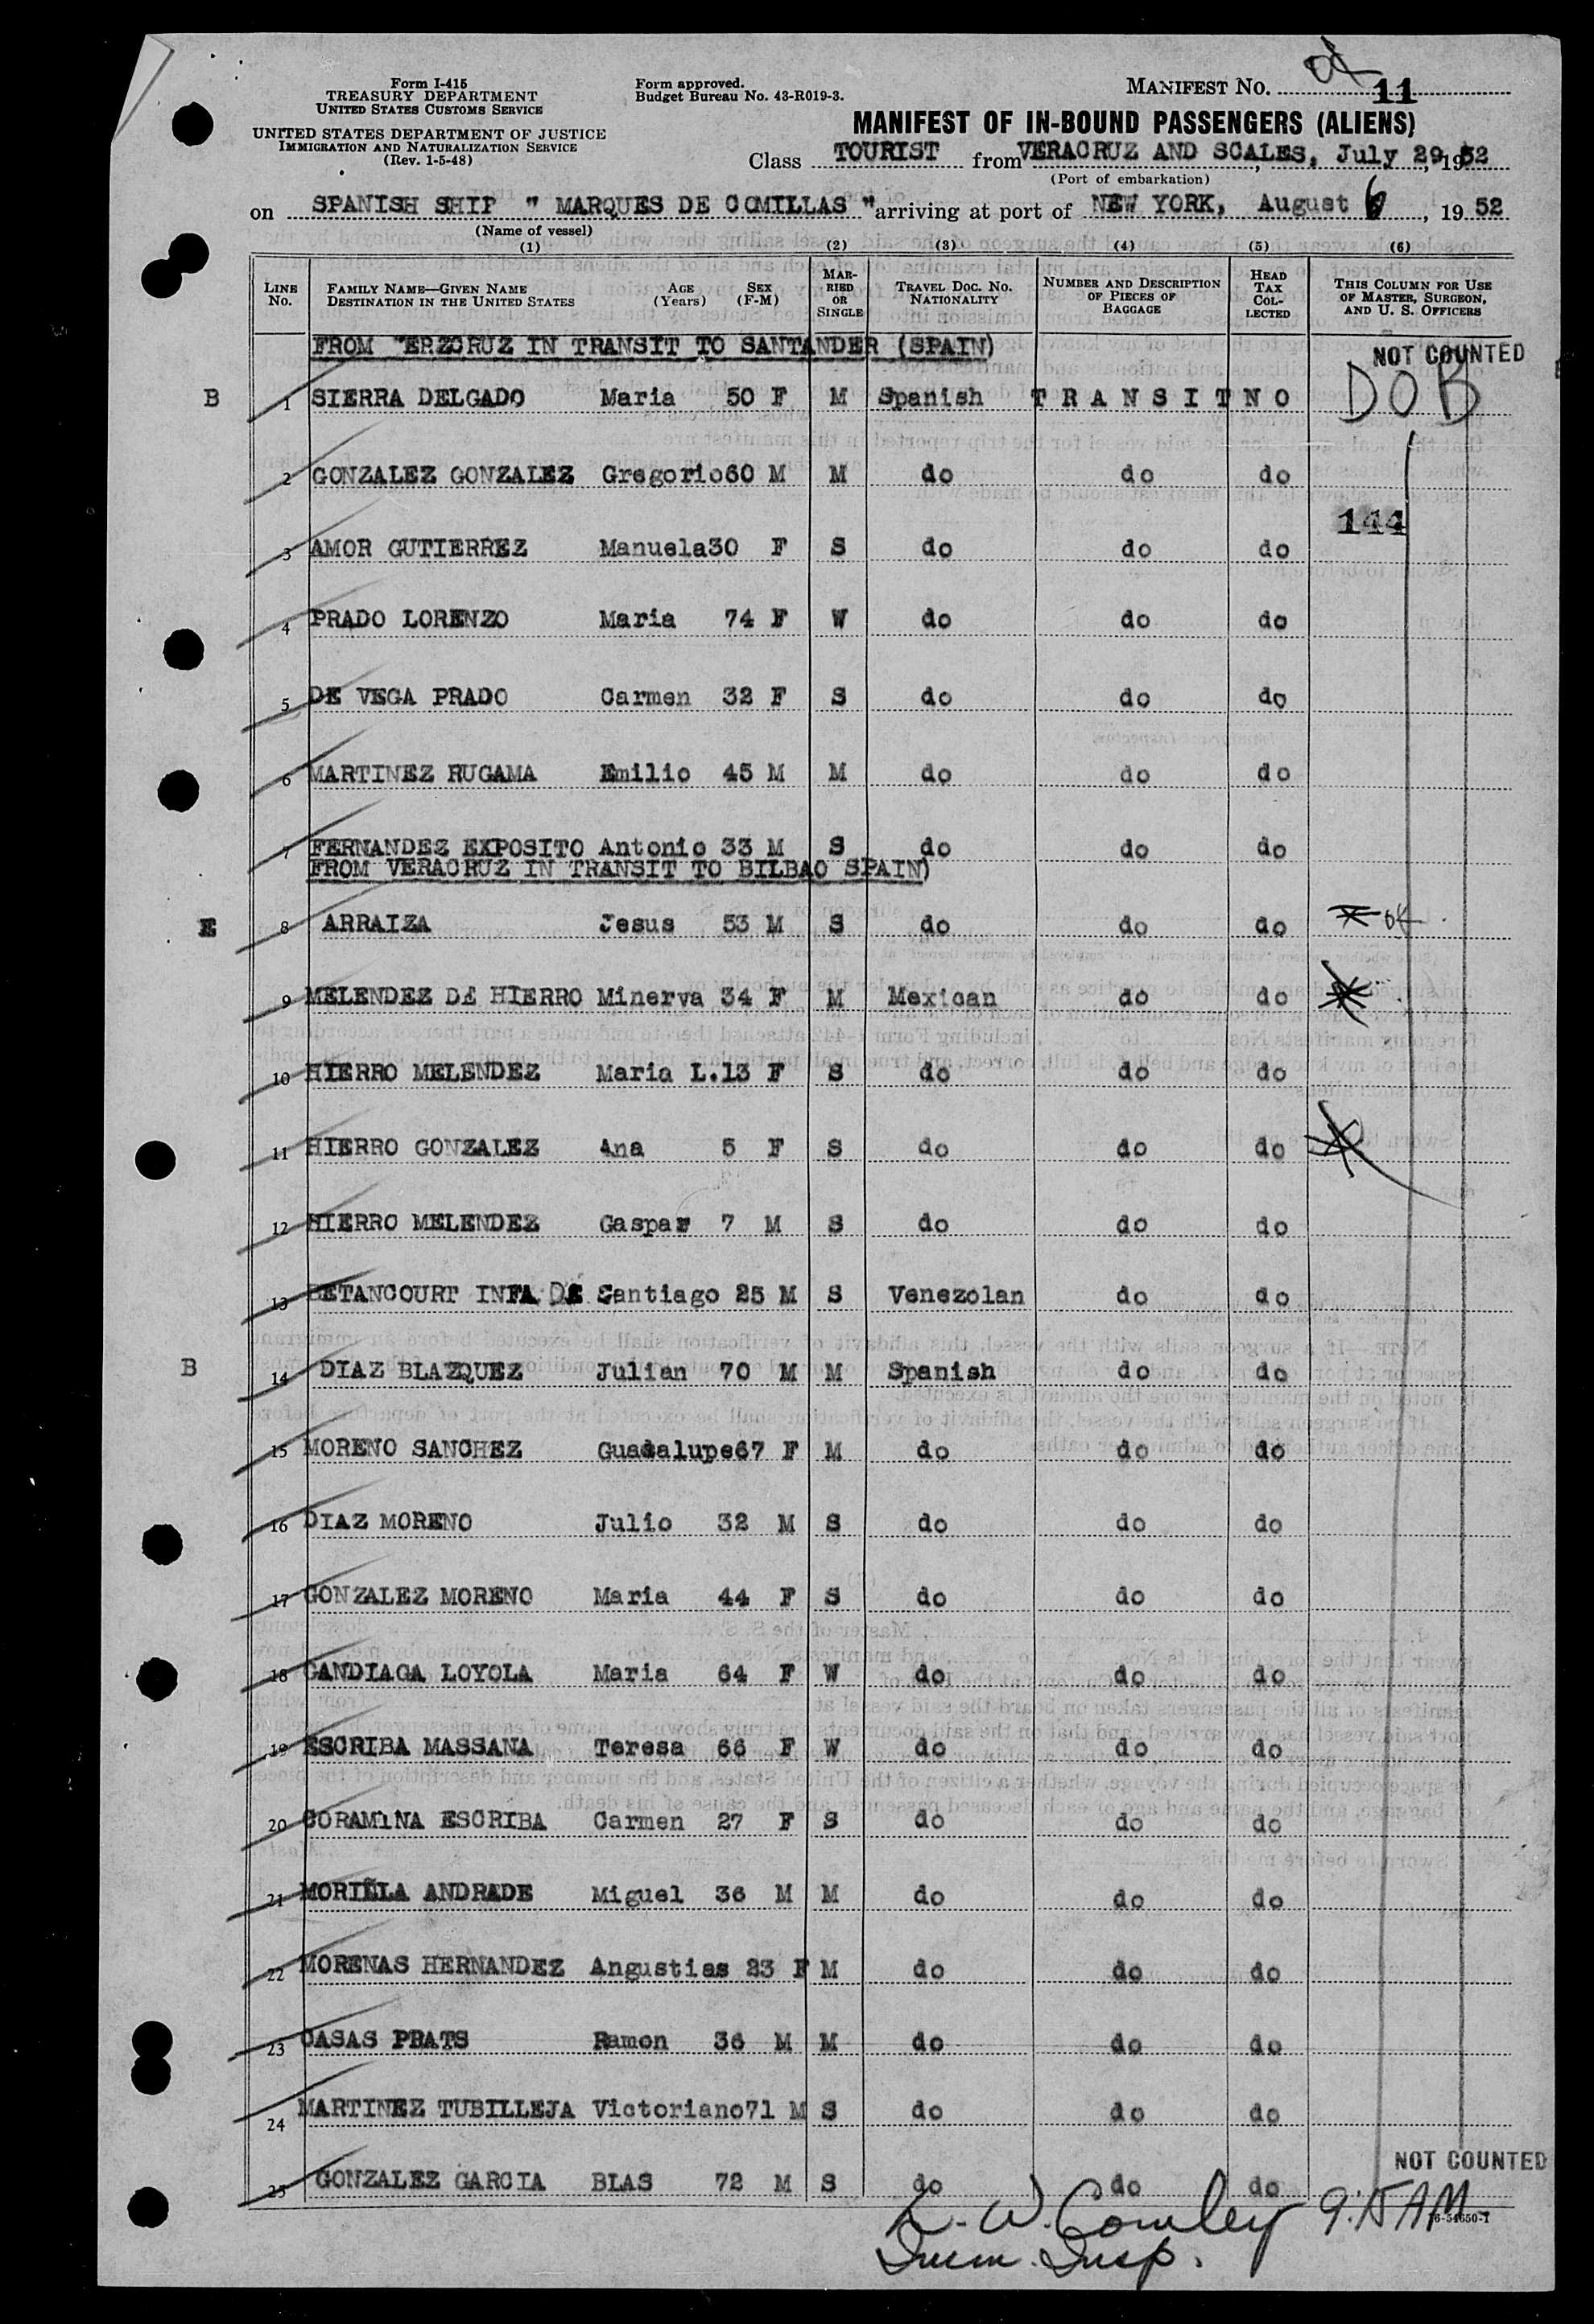 ok
Form I-415
TREASURY DEPARTMENT
UNITED STATES CUSTOMS SERVICE
UNITED STATES DEPARTMENT OF JUSTICE
IMMIGRATION AND NATURALIZATION SERVICE
(Rev. 1-5-48)
Form approved.
Budget Bureau No. 43-R019-3.
MANIFEST NO. 11
MANIFEST OF IN-BOUND PASSENGERS (ALIENS)
Class TOURIST from VERACRUZ AND SCALES, July 29, 1952
(Port of embarkation)
on SPANISH SHIP " MARQUES DE COMILLAS " arriving at port of NEW YORK, August 6, 19 52
(Name of vessel)
(1) (2) (3) (4) (5) (6)
LINE No. FAMILY NAME—GIVEN NAME DESTINATION IN THE UNITED STATES AGE (Years) SEX (F-M) MARRIED OR SINGLE TRAVEL DOC. NO. NATIONALITY NUMBER AND DESCRIPTION OF PIECES OF BAGGAGE HEAD TAX COLLECTED THIS COLUMN FOR USE OF MASTER, SURGEON, AND U. S. OFFICERS
FROM VERZCRUZ IN TRANSIT TO SANTANDER (SPAIN) NOT COUNTED
B 1 SIERRA DELGADO Maria 50 F M Spanish T R A N S I T N O DOB
2 GONZALEZ GONZALEZ Gregorio 60 M M do do do
144
3 AMOR GUTIERREZ Manuela 30 F S do do do
4 PRADO LORENZO Maria 74 F W do do do
5 DE VEGA PRADO Carmen 32 F S do do do
6 MARTINEZ RUGAMA Emilio 45 M M do do do
7 FERNANDEZ EXPOSITO Antonio 33 M S do do do
FROM VERACRUZ IN TRANSIT TO BILBAO SPAIN)
E 8 ARRAIZA Jesus 53 M S do do do ok
9 MELENDEZ DE HIERRO Minerva 34 F M Mexican do do
10 HIERRO MELENDEZ Maria L. 13 F S do do do
11 HIERRO GONZALEZ Ana 5 F S do do do
12 HIERRO MELENDEZ Gaspar 7 M S do do do
13 BETANCOURT INFA DE Santiago 25 M S Venezolan do do
B 14 DIAZ BLAZQUEZ Julian 70 M M Spanish do do
15 MORENO SANCHEZ Guadalupe 67 F M do do do
16 DIAZ MORENO Julio 32 M S do do do
17 GONZALEZ MORENO Maria 44 F S do do do
18 GANDIAGA LOYOLA Maria 64 F W do do do
19 ESCRIBA MASSANA Teresa 66 F W do do do
20 CORAMINA ESCRIBA Carmen 27 F S do do do
21 MORILLA ANDRADE Miguel 36 M M do do do
22 MORENAS HERNANDEZ Angustias 23 F M do do do
23 CASAS PRATS Ramon 36 M M do do do
24 MARTINEZ TUBILLEJA Victoriano 71 M S do do do
NOT COUNTED
25 GONZALEZ GARCIA BLAS 72 M S do do do
16-54650-1
Cowley 9:15 AM
Imm. Insp.